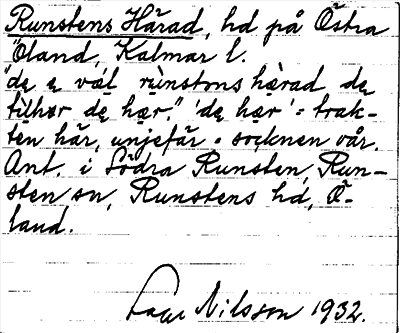 Runstens Härad, hd på Östra
Öland, Kalmar l.
"de e väl rùnstons hærad de
tìlhør de hær." 'de hær' = trak-
ten här, unjefär = socknen vår.
Ant. i Södra Runsten, Run-
sten sn, Runstens hd, Ö-
land.
Nilsson 1932.